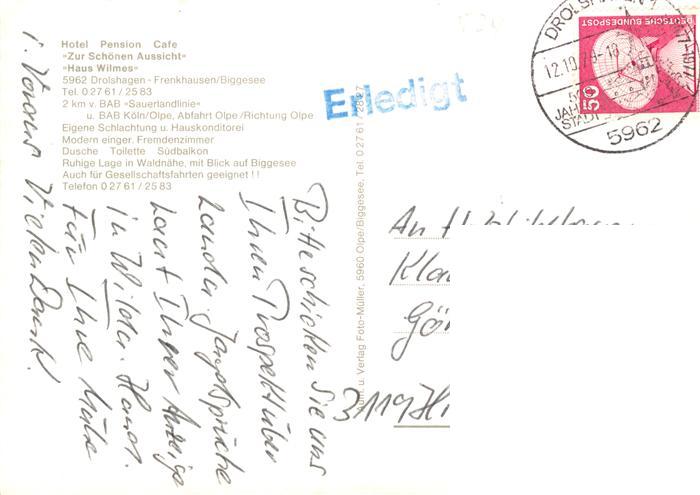 Hotel Pension Cafe
»Zur Schönen Aussicht«
»Haus Wilmes«
5962 Drolshagen - Frenkhausen/Biggesee
Tel. 0 27 61 / 25 83
2 km v. BAB »Sauerlandlinie«
u. BAB Köln/Olpe, Abfahrt Olpe/Richtung Olpe
Eigene Schlachtung u. Hauskonditorei
Modern einger. Fremdenzimmer
Dusche Toilette Südbalkon
Ruhige Lage in Waldnähe, mit Blick auf Biggesee
Auch für Gesellschaftsfahrten geeignet !!
Telefon 0 27 61 / 25 83
Erledigt
DEUTSCHE BUNDESPOST
50
12.10.78-18
JAHRE
STADT
5962
u. Verlag Foto-Müller, 5960 Olpe/Biggesee, Tel. 0 27 61/
Bitte schicken Sie uns
Ihren Prospekt über
Laut Ihrer Anzeige
in Wild u. Hund.
Für Ihre Mühe
i. Voraus Vielen Dank.
An
Kla
Gö
3119 Hi